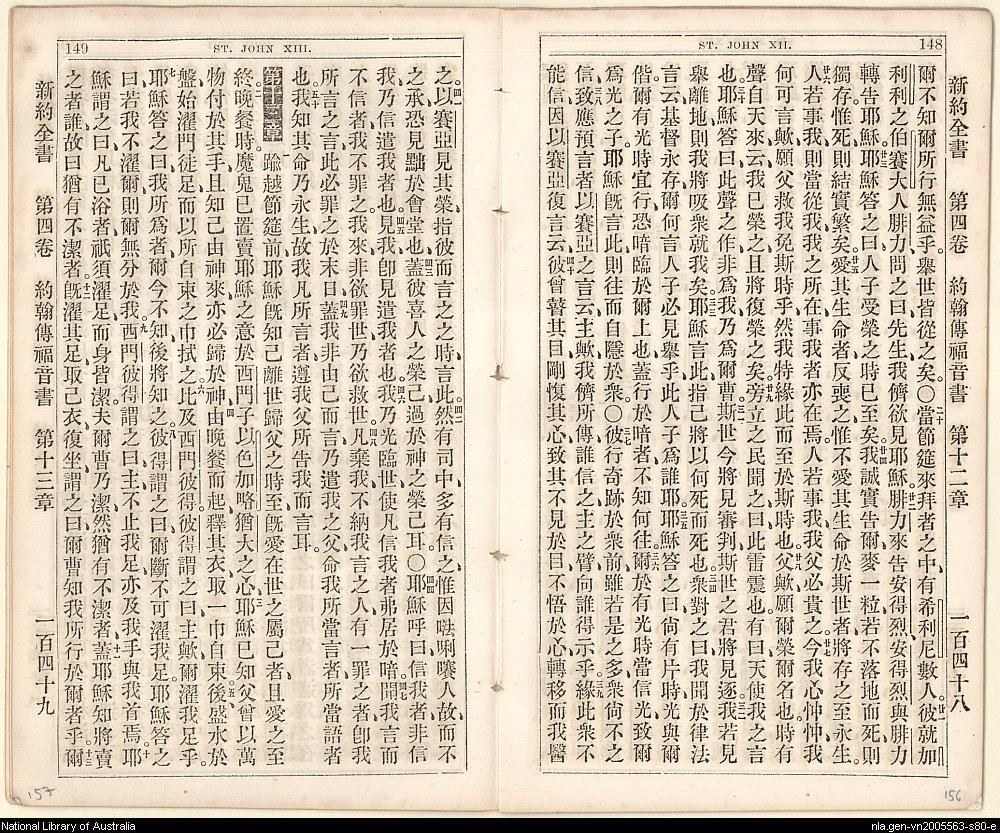 148
ST. JOHN XII.
新約全書 第四卷 約翰傳福音書 第十二章 一百四十八
爾不知爾所行無益乎。舉世皆從之矣。〇二十當節筵來拜者之中、有希利尼數人、廿一彼就加
利利之伯賽大人腓力、問之曰、先生、我儕欲見耶穌、廿二腓力來告安得烈、安得烈與腓力
轉告耶穌。廿三耶穌答之曰、人子受榮之時已至矣。廿四我誠實告爾、麥一粒若不落地而死、則
獨存、惟死則結實繁矣。廿五愛其生命者反喪之、惟不愛其生命於斯世者、將存之至永生。
廿六人若事我則當從我、我之所在、事我者亦在焉、人若事我、我父必貴之。廿七今我心忡忡、我
何可言歟、願父救我免斯時乎、然我特緣此而至於斯時也。廿八父歟、願爾榮爾名也。時有
聲自天來云、我已榮之、且將復榮之矣。廿九旁立之民聞之曰、此雷震也、有曰、天使與之言
也。三十耶穌答曰、此聲之作、非爲我、乃爲爾曹。卅一斯世今將見審判、斯世之君將見逐。卅二我若見
舉離地、則我將吸衆就我矣。卅三耶穌言此、指己將以何死而死也。卅四衆對之曰、我聞於律法
言云、基督永存、爾何言人子必見舉乎、此人子爲誰耶。卅五耶穌答之曰、尙有片時、光與爾
偕、爾有光時宜行、恐暗臨於爾上也、蓋行於暗者、不知何往。卅六爾於有光時、當信光、致爾
爲光之子、耶穌旣言此、則往而自隱於衆。〇卅七彼行奇跡於衆前、雖若是之多、衆尙不之
信。卅八致應預言者以賽亞之言云、主歟、我儕所傳誰信之、主之臂向誰得示乎。卅九緣此衆不
能信、因以賽亞復言云、四十彼曾瞽其目、剛愎其心、致其不見於目、不悟於心、轉移而我醫
149
ST. JOHN XIII.
新約全書 第四卷 約翰傳福音書 第十三章 一百四十九
之。四一以賽亞見其榮、指彼而言之之時、言此。四二然有司中多有信之、惟因𠵽唎㘔人故、而不
之承、恐見黜於會堂也。四三蓋彼喜人之榮、已過於神之榮己耳。〇四四耶穌呼曰、信我者、非信
我、乃信遣我者也。四五見我、卽見遣我者也。四六我乃光臨世、使凡信我者、弗居於暗。四七聞我言而
不信者、我不罪之、我來非欲罪世、乃欲救世。四八凡棄我、不納我言之人、有一罪之者、卽我
所言之言、此必罪之於末日。四九蓋我非由己而言、乃遣我之父、命我所當言者、所當語者
也。五十我知其命乃永生、故我凡所言者、遵我父所告我而言耳。
第十三章 一踰越節筵前、耶穌旣知己離世歸父之時至、旣愛在世之屬己者、且愛之至
終。二晚餐時、魔鬼已置賣耶穌之意、於西門子以色加略猶大之心。三耶穌已知父曾以萬
物付於其手、且知己由神來、亦必歸於神、四由晚餐而起、釋其衣、取一巾自束、五後盛水於
盤、始濯門徒足、而以所自束之巾拭之。六此及西門彼得、彼得謂之曰、主歟、爾濯我足乎。
七耶穌答之曰、我所爲者、爾今不知、後將知之。八彼得謂之曰、爾斷不可濯我足、耶穌答之
曰、若我不濯爾、則爾無分於我。九西門彼得謂之曰、主不止我足、亦及我手與我首焉。十耶
穌謂之曰、凡已浴者、祇須濯足、而身皆潔、夫爾曹乃潔、然猶有不潔者。十一蓋耶穌知將賣
之者誰、故曰、猶有不潔者。十二旣濯其足、取己衣、復坐、謂之曰、爾曹知我所行於爾者乎。十三爾
157
156
National Library of Australia
nla.gen-vn2005563-s80-e